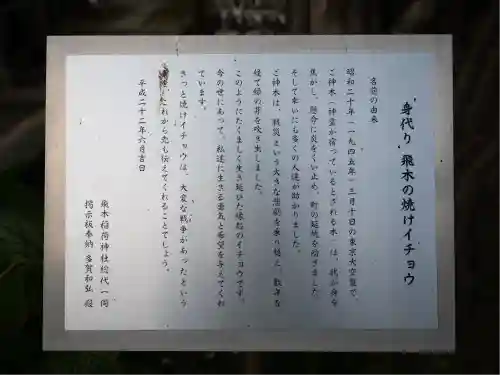 身代り 飛木の焼けイチョウ
名前の由来
昭和二十年(一九四五年)三月十日の東京大空襲で、
ご神木(神霊が宿っているとされる木)は、我が身を
焦がし、懸命に炎をくい止め、町の延焼を防ぎました
そして幸いにも多くの人達が助かりました。
ご神木は、戦災という大きな悲劇を乗り越え、数年を
経て緑の芽を吹き出しました。
このようにたくましく生き延びた縁起のイチョウです。
今の世にあって、私達に生きる勇気と希望を与えてくれ
ています。
きっと焼けイチョウは、大変な戦争があったという
これから先も伝えてくれることでしょう。
平成二十二年六月吉日
飛木稲荷神社総代一同
掲示板奉納 多賀和弘 殿